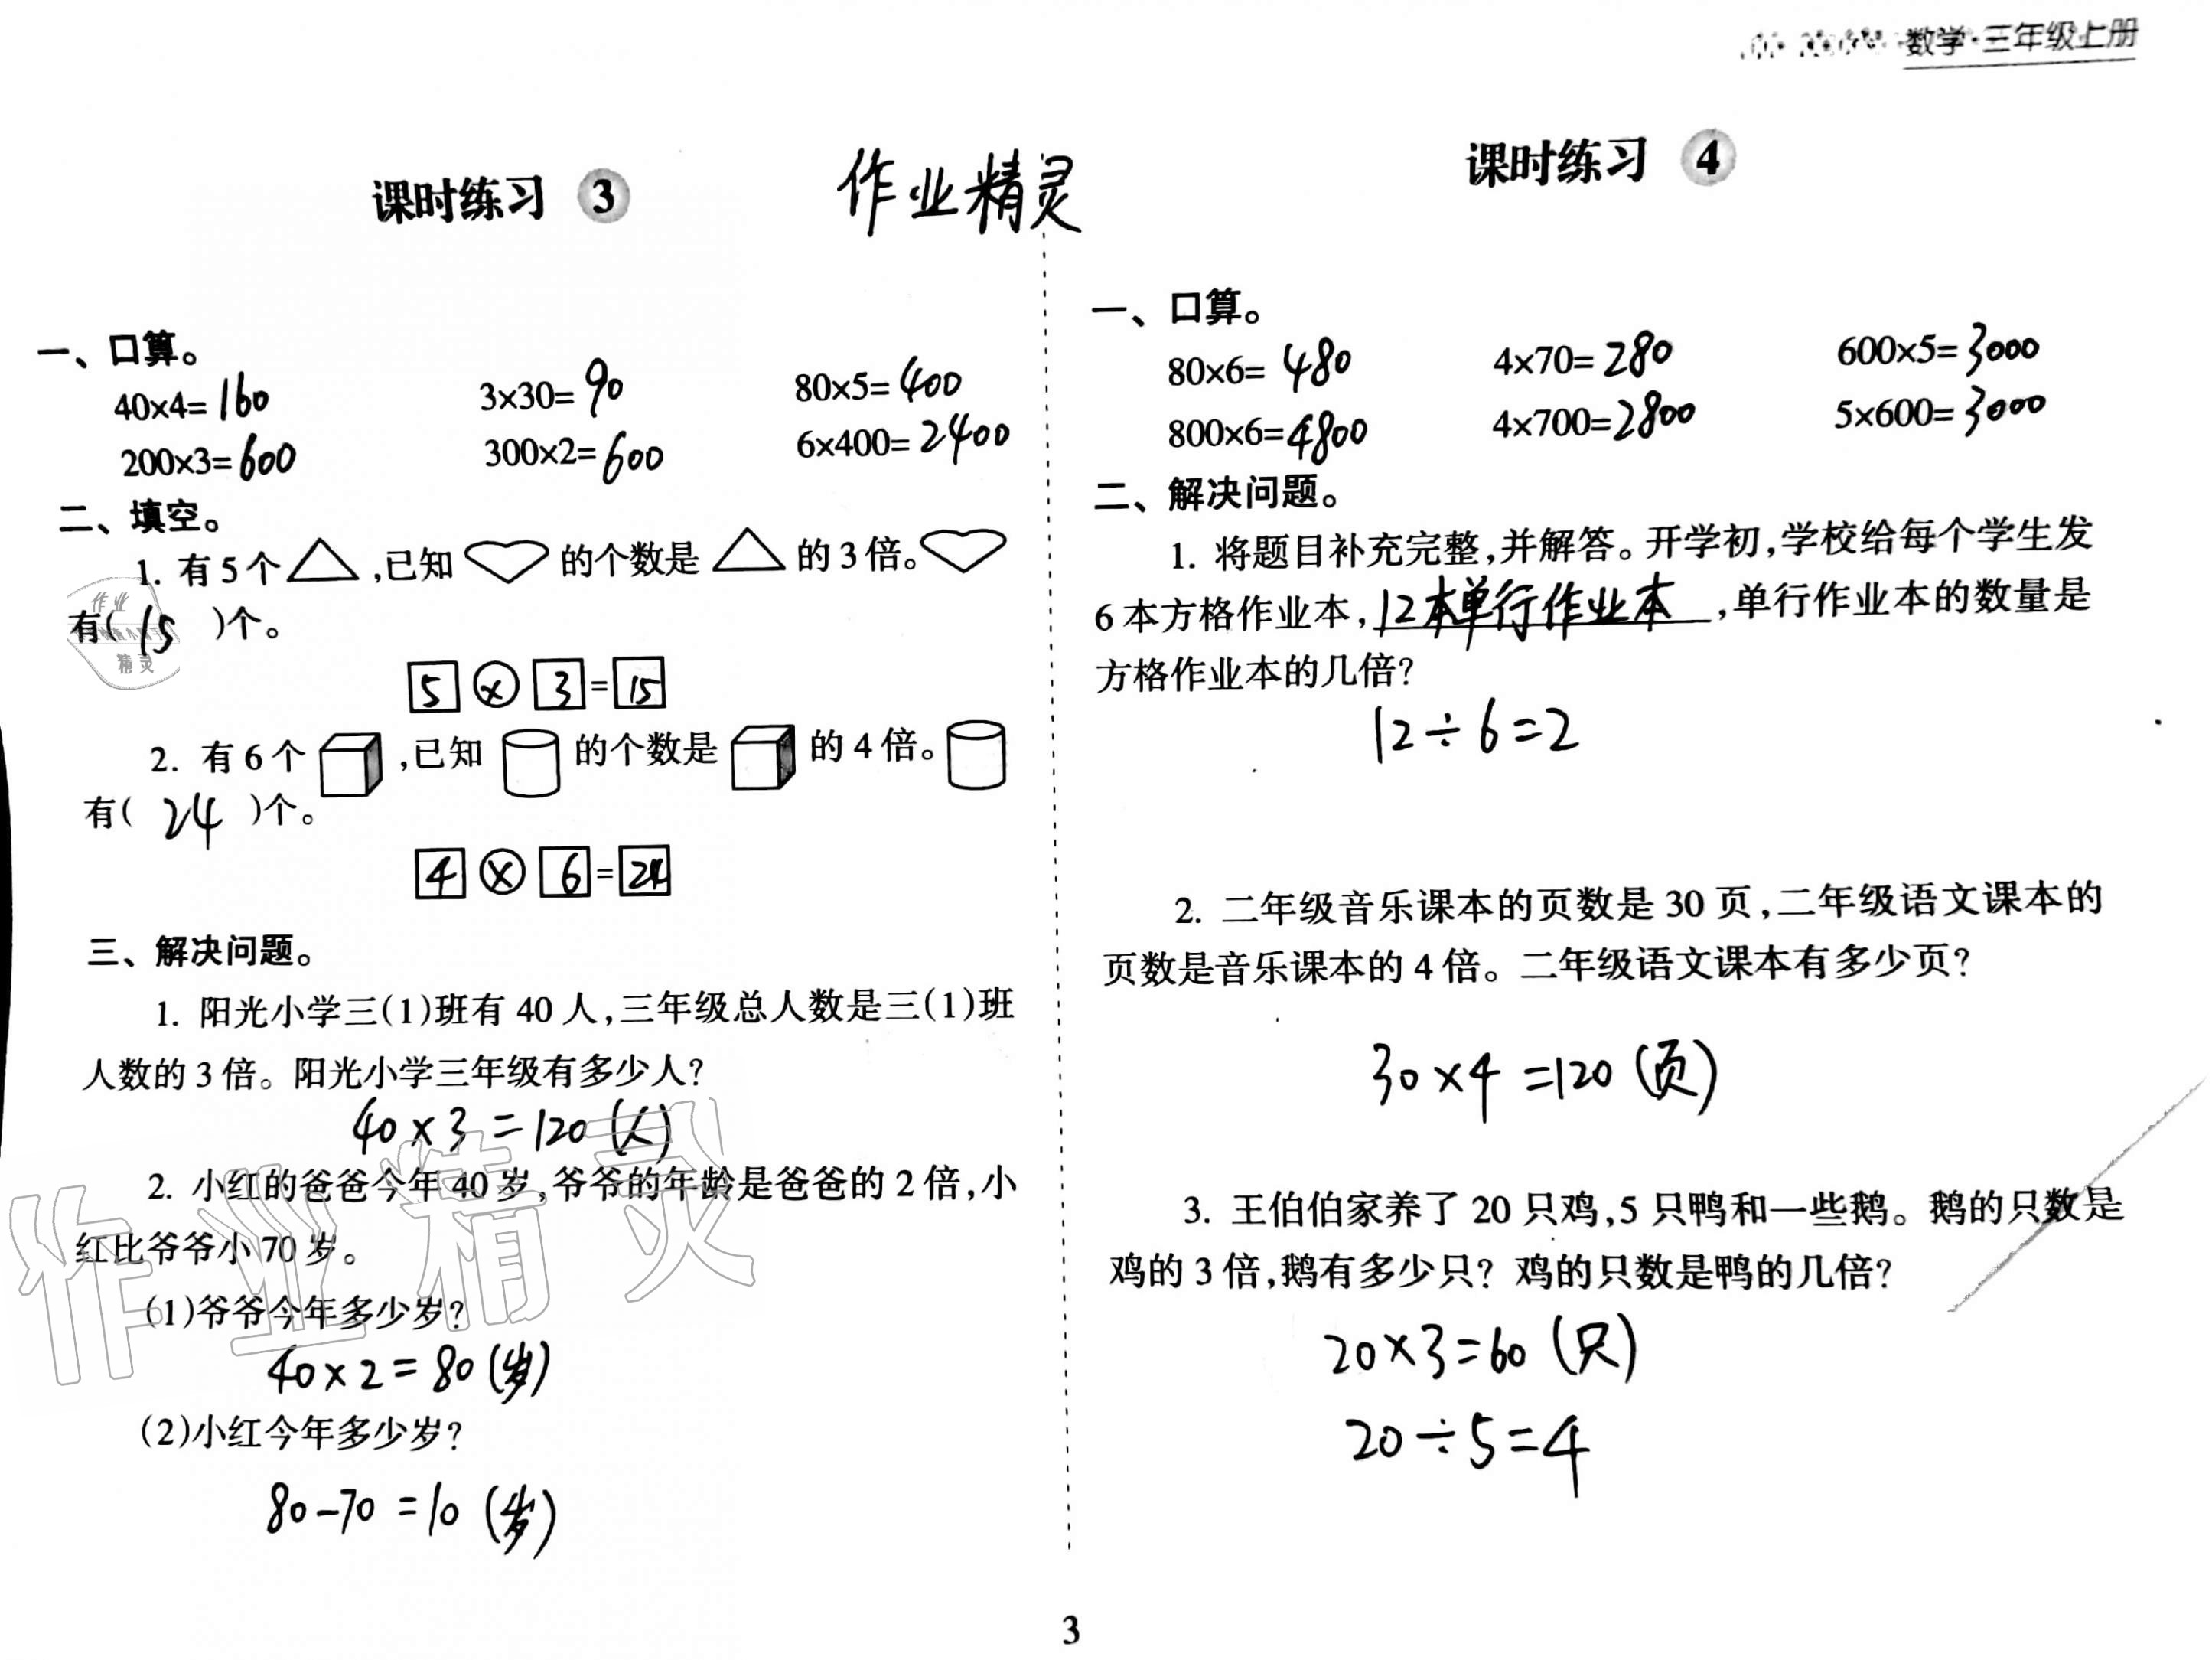 数学·三年级上册
课时练习 3
作业精灵
一、口算。
40×4=160 3×30=90 80×5=400
200×3=600 300×2=600 6×400=2400
二、填空。
1. 有5个 ,已知 的个数是 的3倍。
有( 15 )个。
5 × 3 = 15
2. 有6个 ,已知 的个数是 的4倍。
有( 24 )个。
4 × 6 = 24
三、解决问题。
1. 阳光小学三(1)班有40人,三年级总人数是三(1)班
人数的3倍。阳光小学三年级有多少人?
40×3=120(人)
2. 小红的爸爸今年40岁,爷爷的年龄是爸爸的2倍,小
红比爷爷小70岁。
(1)爷爷今年多少岁?
40×2=80(岁)
(2)小红今年多少岁?
80-70=10(岁)
课时练习 4
一、口算。
80×6=480 4×70=280 600×5=3000
800×6=4800 4×700=2800 5×600=3000
二、解决问题。
1. 将题目补充完整,并解答。开学初,学校给每个学生发
6本方格作业本,12本单行作业本,单行作业本的数量是
方格作业本的几倍?
12÷6=2
2. 二年级音乐课本的页数是30页,二年级语文课本的
页数是音乐课本的4倍。二年级语文课本有多少页?
30×4=120(页)
3. 王伯伯家养了20只鸡,5只鸭和一些鹅。鹅的只数是
鸡的3倍,鹅有多少只?鸡的只数是鸭的几倍?
20×3=60(只)
20÷5=4
3
作业精灵
作业
精灵